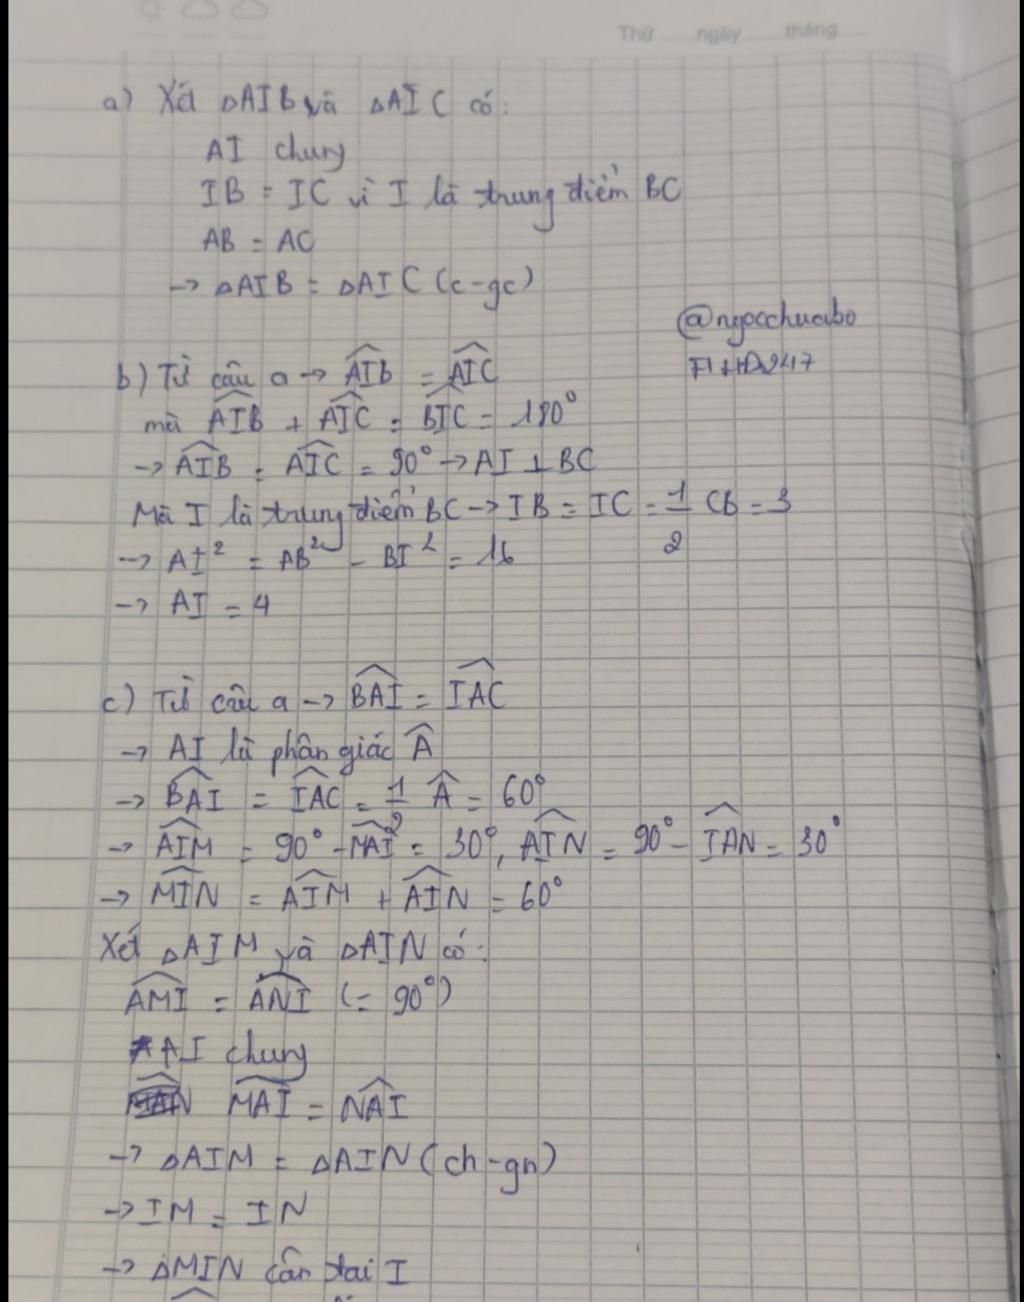 Thứ ngày tháng
a) Xét ΔAIB và ΔAIC có:
AI chung
IB = IC vì I là trung điểm BC
AB = AC
→ ΔAIB = ΔAIC (c-gc)
@ngocchuabo
b) Từ câu a → \widehat{AIB} = \widehat{AIC}
mà \widehat{AIB} + \widehat{AIC} = \widehat{BIC} = 180°
→ \widehat{AIB} = \widehat{AIC} = 90° → AI ⊥ BC
Mà I là trung điểm BC → IB = IC = 1/2 CB = 3
→ AI² = AB² - BI² = 16
→ AI = 4
c) Từ câu a → \widehat{BAI} = \widehat{IAC}
→ AI là phân giác \widehat{A}
→ \widehat{BAI} = \widehat{IAC} = 1/2 \widehat{A} = 60°
→ \widehat{AIM} = 90° - \widehat{MAI} = 30°, \widehat{AIN} = 90° - \widehat{IAN} = 30°
→ \widehat{MIN} = \widehat{AIM} + \widehat{AIN} = 60°
Xét ΔAIM và ΔAIN có:
\widehat{AMI} = \widehat{ANI} (= 90°)
AI chung
\widehat{MAI} = \widehat{NAI}
→ ΔAIM = ΔAIN (ch-gn)
→ IM = IN
→ ΔMIN cân tai I